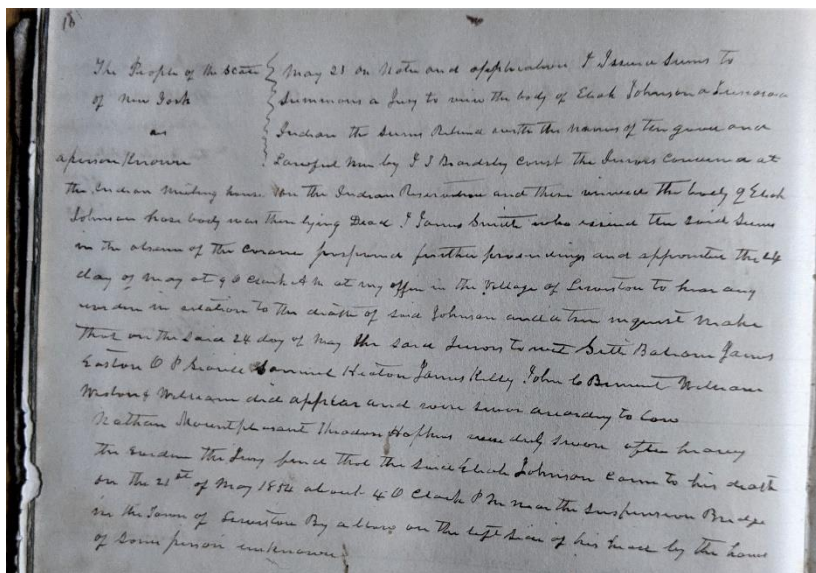 18
The People of the State { May 21 on Note and application I Issued Sums to
of New York { Summons a Jury to view the body of Eliah Johnson a Tuscarora
as { Indian the Sums Retund with the names of ten good and
a person Known { Lawful men by J J Const the Jurors Convened at
the Indian meeting house on the Indian Reservation and there viewed the body of Eliah
Johnson hose body was then lying Dead I James Smith who issued the said Sums
in the absence of the Corone postpond further proceedings and appointed the 24
day of may at 9 O Clock A M at my offic in the Village of Lewiston to hear any
in relation to the death of said Johnson and a true inquest make
that on the said 24 day of May the said Jurors to wit Seth James
Easton O P Samuel James Kelly John C Bement William
William did appear and were sworn according to law
Nathan Mountpleasant Theodore Hopkins were duly sworn after hearing
the the Jury find that the said Eliah Johnson came to his death
on the 21st of May 1854 about 4 O Clock P M near the Suspension Bridge
in the Town of Lewiston By a blow on the left side of his head by the hand
of Some person unknown